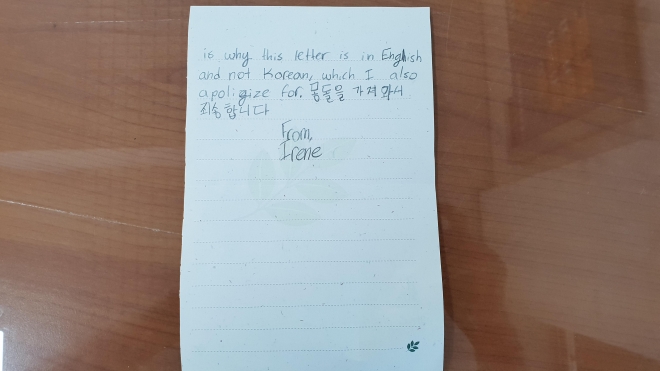 is why this letter is in English
and not Korean, which I also
apoligize for. 몽돌을 가져와서
죄송합니다
From,
Irene